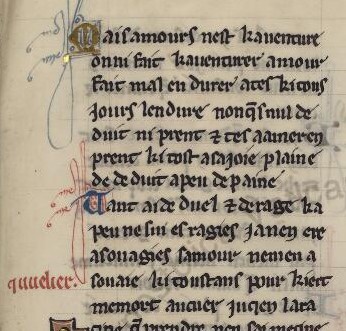 Mais amours nest kauenture
on ni fait kauenturer amour
fait mal endurer ates ki tous
iours lendure non q̃s nul de
duit ni prent ⁊ tes aamer en
prent ki tost a sa ioie plaine
de deduit a peu de paine
Tant ai de duel ⁊ de rage ka
peu ne sui esragies ia nen ere
asouagies samour nemen a
souaie ki tous tans pour kiert
memort au cuer iuqen lara
cine q̃ prendre